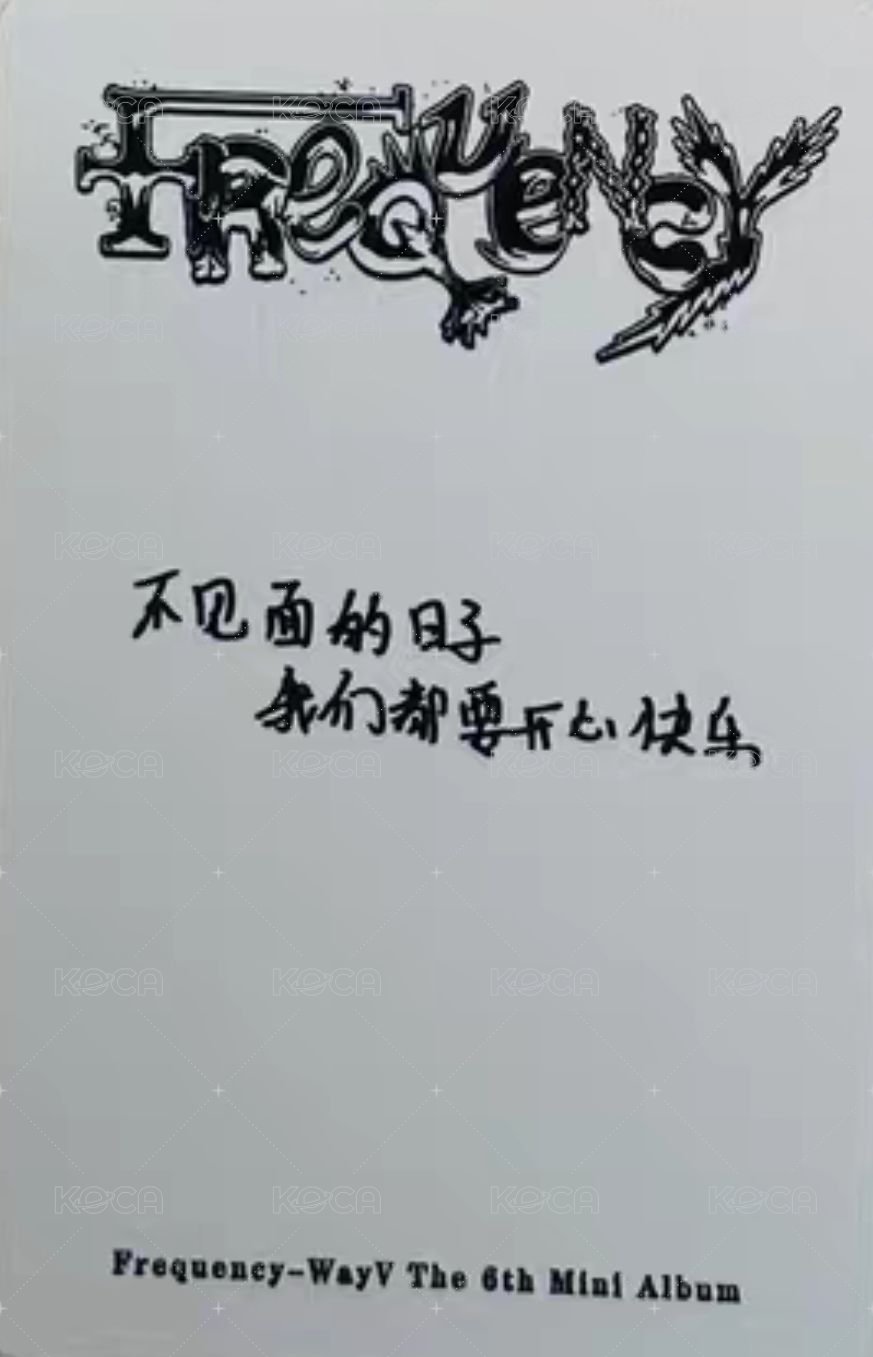 FReQUeNcy
不见面的日子
我们都要开心快乐
Frequency-WayV The 6th Mini Album
KOCA